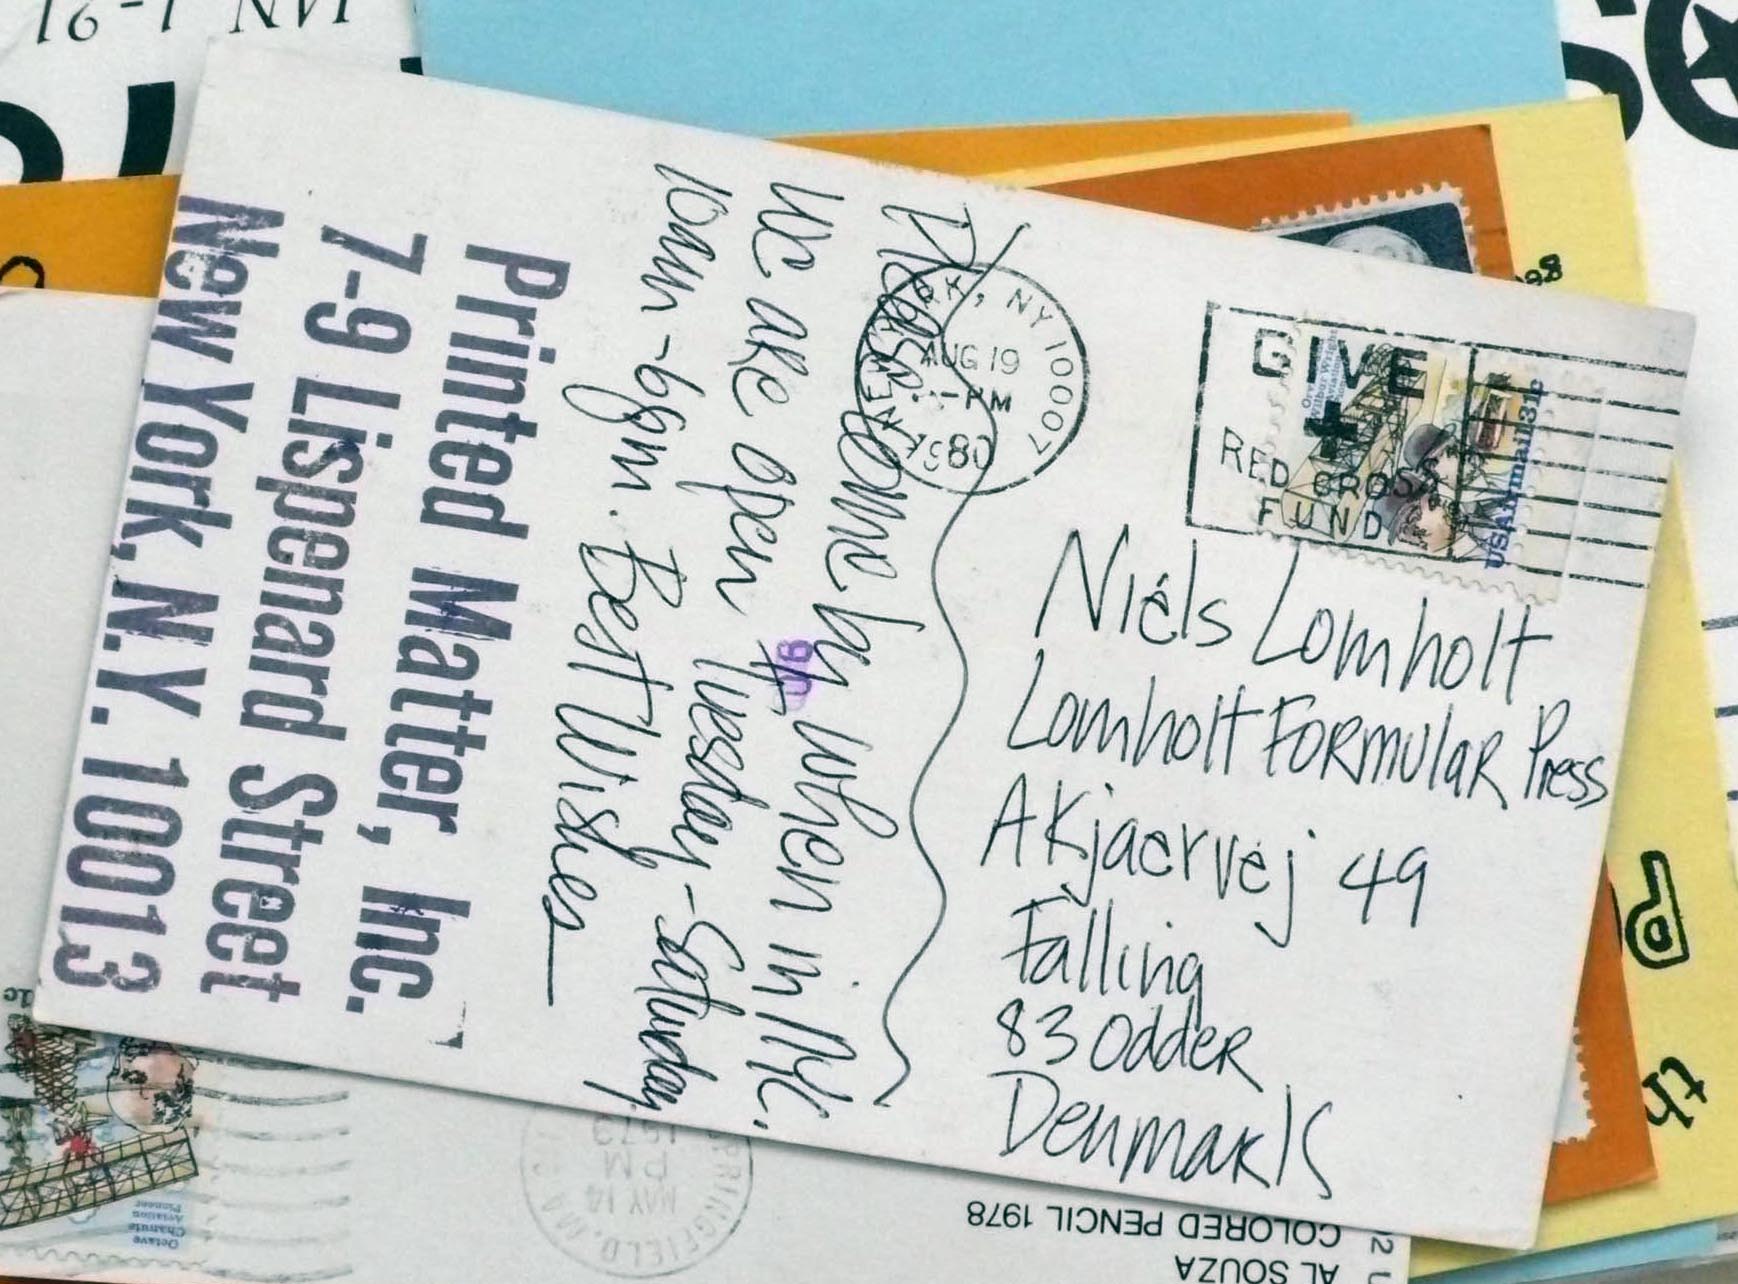 Printed Matter, Inc.
7-9 Lispenard Street
New York, N.Y. 10013
Please come by when in NYC.
We are open Tuesday-Saturday
10am-6pm. Best Wishes
NEW YORK, NY 10007
AUG 19
PM
1980
GIVE
+
RED CROSS
FUND
Orville Wright
Wilbur Wright
USAirmail31c
Niels Lomholt
Lomholt Formular Press
AKjaervej 49
Falling
83 Odder
Denmark
JAN 1-21
P
th
SPRINGFIELD, MA
MAY 14
PM
1979
Octave
Chanute
Aviation
Pioneer
AL SOUZA
COLORED PENCIL 1978